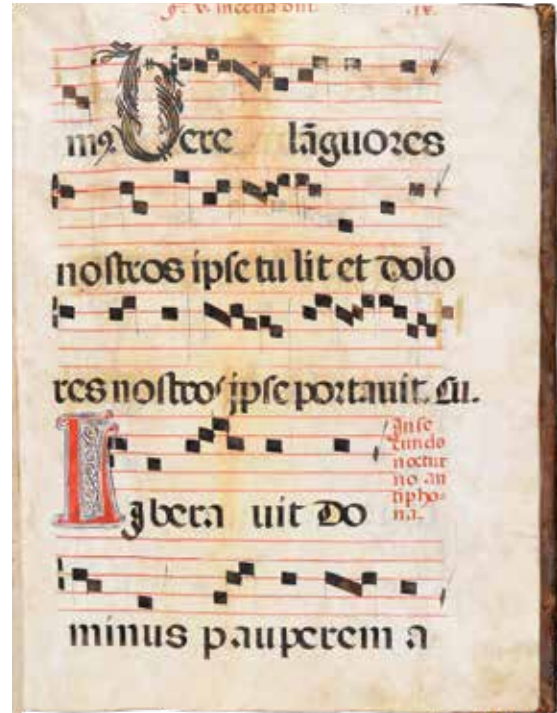 in cena dni.
Uere lãguores
noſtros ipſe tu lit et dolo
res noſtros ipſe portauit. Cu.
In ſe
cundo
noctur
no an
tipho=
na.
LIbera uit Do
minus pauperem a